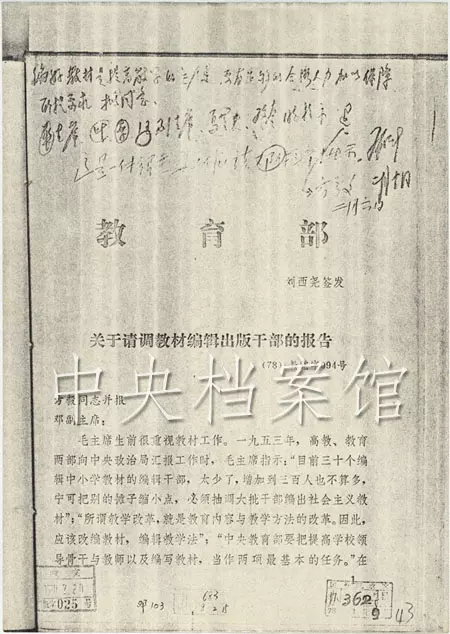 编好教材是提高教学的关键,要有足够的合格人力加以保障
所提要求,拟同意。
方毅
二月六日
二月十日
教育部
刘西尧签发
关于请调教材编辑出版干部的报告
(78) 094号
中央档案馆
方毅同志并报
邓副主席:
毛主席生前很重视教材工作。一九五三年,高教、教育
两部向中央政治局汇报工作时,毛主席指示:“目前三十个编
辑中小学教材的编辑干部,太少了,增加到三百人也不算多,
宁可把别的摊子缩小点,必须抽调大批干部编出社会主义教
材”;“所谓教学改革,就是教育内容与教学方法的改革。因此,
应该改编教材,编辑教学法”;“中央教育部要把提高学校领
导骨干与教师以及编写教材,当作两项最基本的任务。”在
1
025号
103
362
43